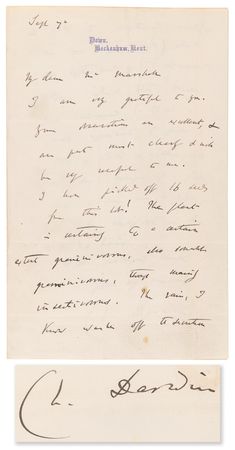 Sept 7th
Down,
Beckenham, Kent.
My dear Mr Marshall
I am very grateful to you.
Your observations are excellent, &
are just most
be very useful to me.
I have picked off 16 seeds
for this lot! The plant
is certainly to a certain
extent graminivorous, also
graminivorous, though mainly
insectivorous. The rain, I
know washes off the secretion
Ch. Darwin